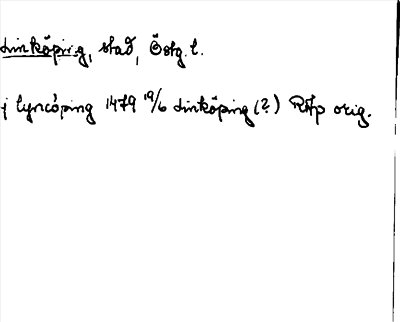 Linköping, stad, Östg. l.
j lyncöping 1479 19/6 Linköping (?) RAp orig.